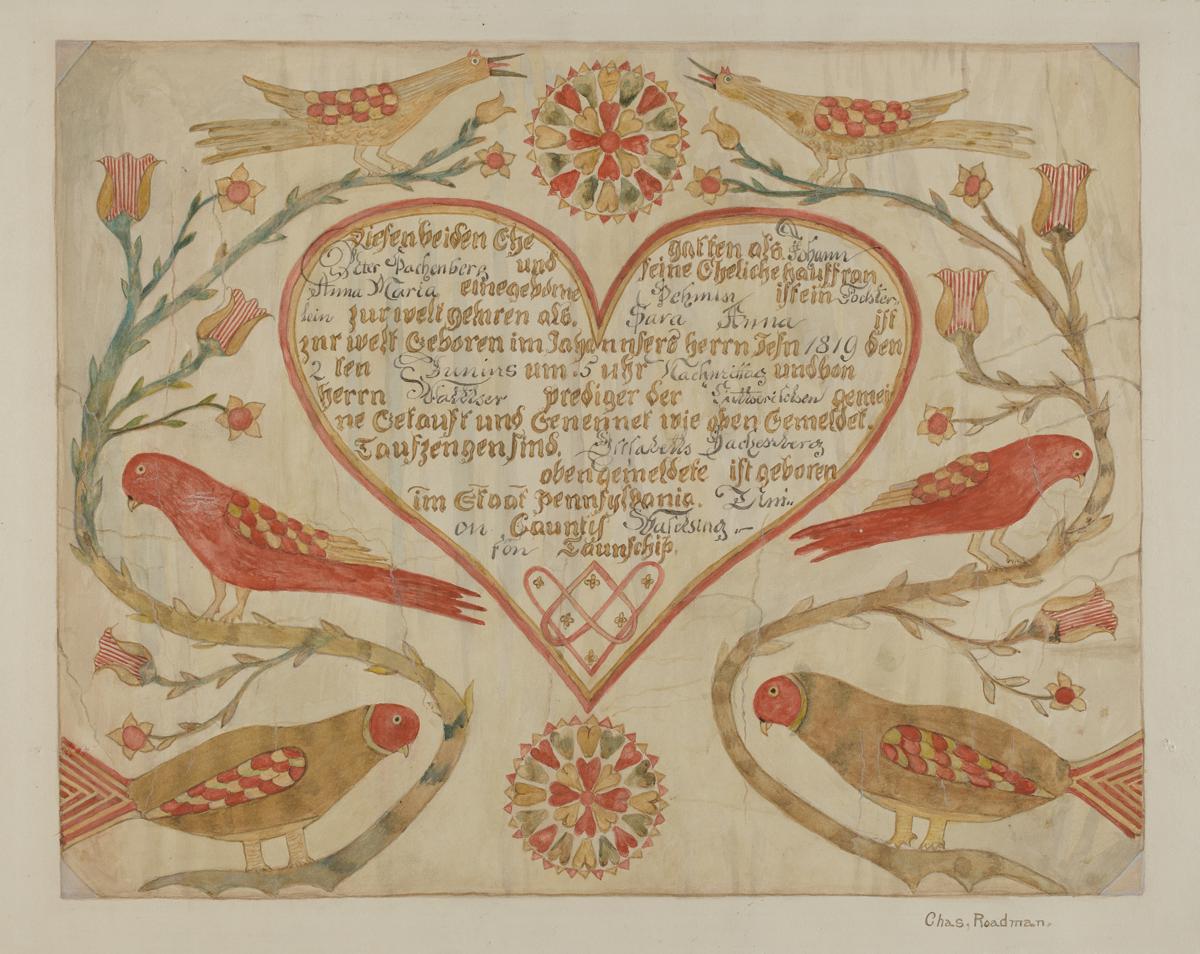 Diesen beiden Ehe gatten als Johann
Peter Dachenberg und seine Eheliche hauffrau
Anna Maria eine geborne ist ein Tochter
lein zur welt gehren als. Sara Anna ist
zur welt Geboren im Jahr unsers herrn Jesu 1819 den
2 ten Junius um 5 uhr Nachmittag und von
herrn prediger der gemei
ne Getauft und Genennet wie oben Gemeldet.
Taufzeugen sind. Dachenberg
oben gemeldete ist geboren
im Staat Pennsylvania. Uni-
on Caunty
ton Taunschip.
Chas. Roadman.